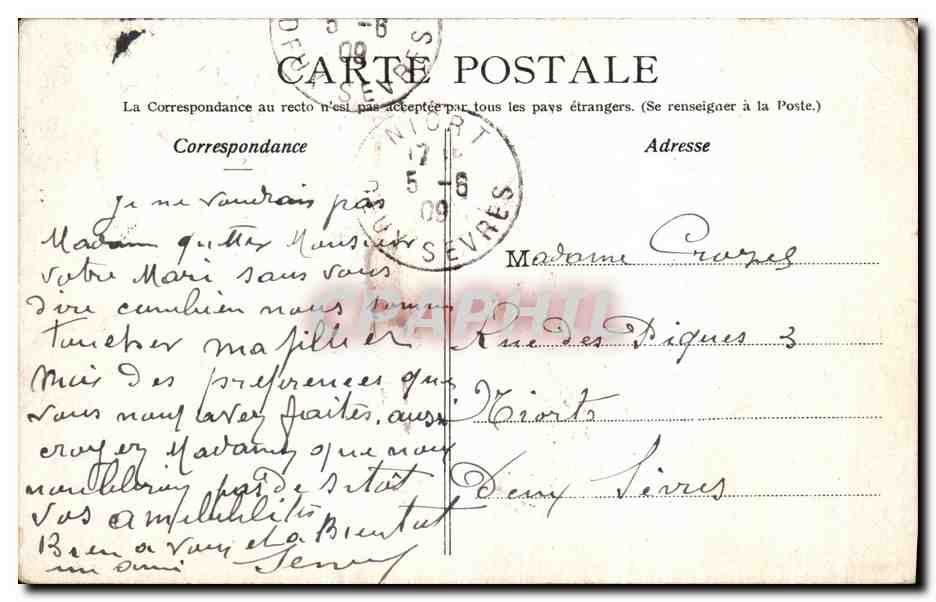 5 -6
09
DEUX SEVRES
CARTE POSTALE
La Correspondance au recto n'est pas acceptée par tous les pays étrangers. (Se renseigner à la Poste.)
Correspondance
Adresse
NIORT
5 -6
09
DEUX SEVRES
Je ne voudrais pas
Madam quitter Monsieur
votre Mari sans vous
dire cumbien nous somme
toucher ma fille et
moi des preferences que
vous nous avez faites, aussi
croyez Madame que nous
noublirion pas de sitôt
vos
Bien a vous et a Bientot
un ami
Madame
Rue des Pigues 3
Niort
Deux Sèvres
CPAPHIL